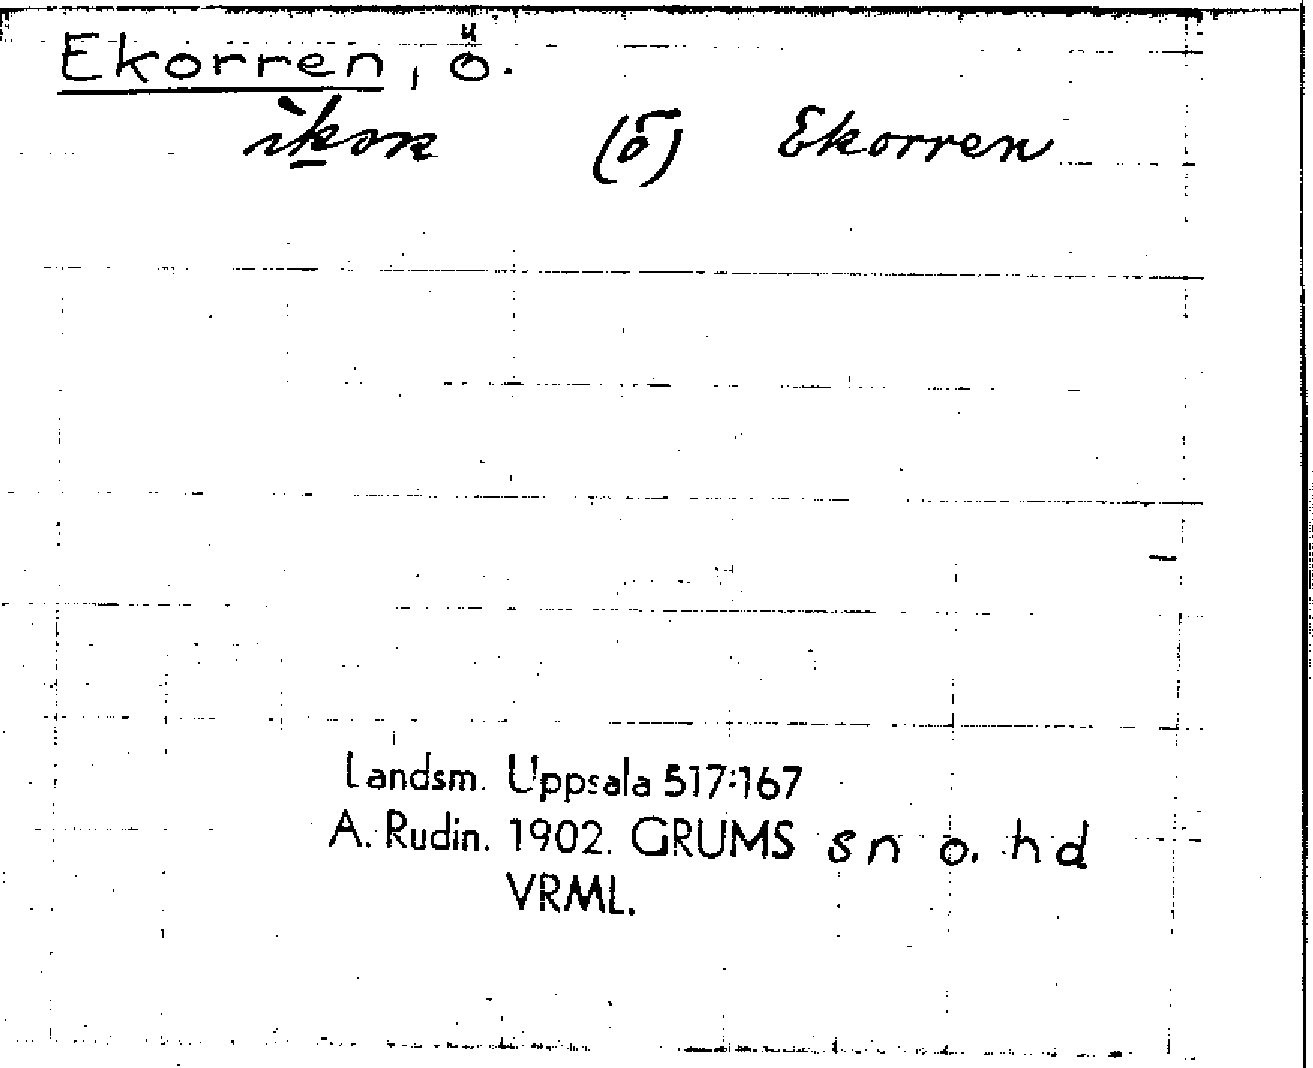 Ekorren, ö.
(ö) Ekorren
Landsm. Uppsala 517:167
A. Rudin. 1902. GRUMS sn o. hd
VRML.